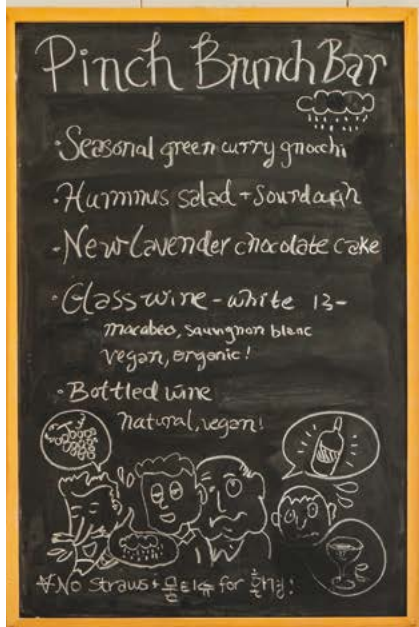 Pinch Brunch Bar
·Seasonal green curry gnocchi
·Hummus salad + Sourdough
-New Lavender chocolate cake
·Glass wine - white 13-
macabeo, sauvignon blanc
vegan, organic!
·Bottled wine
natural, vegan!
No Straws + 물티슈 for 환경!